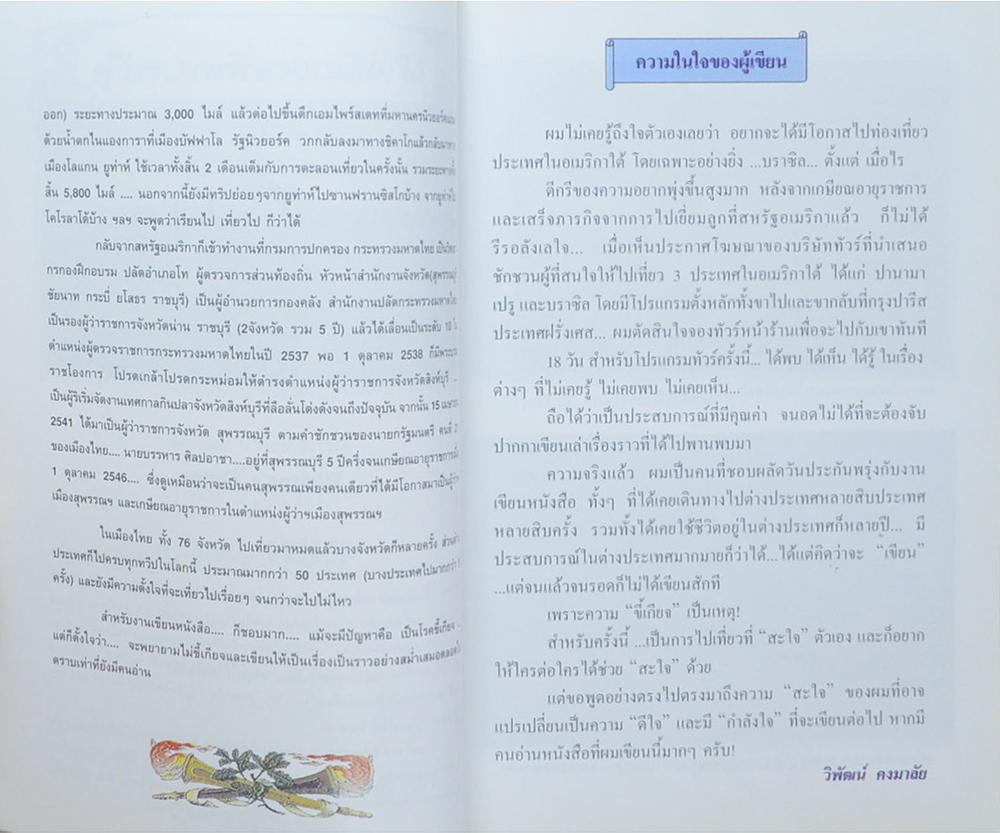 ออก) ระยะทางประมาณ 3,000 ไมล์ แล้วต่อไปขึ้นตึกเอมไพร์สเตทที่มหานครนิวยอร์ค
ด้วยน้ำตกไนแองการาที่เมืองบัฟฟาโล รัฐนิวยอร์ค วกกลับลงมาทางชิคาโกแล้วกลับ
เมืองโลแกน ยูท่าห์ ใช้เวลาทั้งสิ้น 2 เดือนเต็มกับการตะลอนเที่ยวในครั้งนั้น รวมระยะทาง
สิ้น 5,800 ไมล์ .... นอกจากนี้ยังมีทริปย่อยๆจากยูท่าห์ไปซานฟรานซิสโกบ้าง จากยูท่าห์ไป
โคโรลาโด้บ้าง ฯลฯ จะพูดว่าเรียนไป เที่ยวไป ก็ว่าได้
กลับจากสหรัฐอเมริกาก็เข้าทำงานที่กรมการปกครอง กระทรวงมหาดไทย เป็น
กรกองฝึกอบรม ปลัดอำเภอโท ผู้ตรวจการส่วนท้องถิ่น หัวหน้าสำนักงานจังหวัด(สุพรรณบุรี
ชัยนาท กระบี่ ยโสธร ราชบุรี) เป็นผู้อำนวยการกองคลัง สำนักงานปลัดกระทรวงมหาดไทย
เป็นรองผู้ว่าราชการจังหวัดน่าน ราชบุรี (2จังหวัด รวม 5 ปี) แล้วได้เลื่อนเป็นระดับ 10 ใน
ตำแหน่งผู้ตรวจราชการกระทรวงมหาดไทยในปี 2537 พอ 1 ตุลาคม 2538 ก็มีพระบรม
ราชโองการ โปรดเกล้าโปรดกระหม่อมให้ดำรงตำแหน่งผู้ว่าราชการจังหวัดสิงห์บุรี ..
เป็นผู้ริเริ่มจัดงานเทศกาลกินปลาจังหวัดสิงห์บุรีที่ลือลั่นโด่งดังจนถึงปัจจุบัน จากนั้น 15
2541 ได้มาเป็นผู้ว่าราชการจังหวัด สุพรรณบุรี ตามคำชักชวนของนายกรัฐมนตรี คนที่
ของเมืองไทย.... นายบรรหาร ศิลปอาชา....อยู่ที่สุพรรณบุรี 5 ปีครึ่งจนเกษียณอายุราชการเมื่อ
1 ตุลาคม 2546.... ซึ่งดูเหมือนว่าจะเป็นคนสุพรรณเพียงคนเดียวที่ได้มีโอกาสมาเป็นผู้ว่า
เมืองสุพรรณฯ และเกษียณอายุราชการในตำแหน่งผู้ว่าฯเมืองสุพรรณฯ
ในเมืองไทย ทั้ง 76 จังหวัด ไปเที่ยวมาหมดแล้วบางจังหวัดก็หลายครั้ง
ประเทศก็ไปครบทุกทวีปในโลกนี้ ประมาณมากกว่า 50 ประเทศ (บางประเทศไปมากกว่า
ครั้ง) และยังมีความตั้งใจที่จะเที่ยวไปเรื่อยๆ จนกว่าจะไปไม่ไหว
สำหรับงานเขียนหนังสือ.... ก็ชอบมาก.... แม้จะมีปัญหาคือ เป็นโรคขี้เกียจ ..
แต่ก็ตั้งใจว่า.... จะพยายามไม่ขี้เกียจและเขียนให้เป็นเรื่องเป็นราวอย่างสม่ำเสมอตลอดไป
ตราบเท่าที่ยังมีคนอ่าน
ความในใจของผู้เขียน
ผมไม่เคยรู้ถึงใจตัวเองเลยว่า อยากจะได้มีโอกาสไปท่องเที่ยว
ประเทศในอเมริกาใต้ โดยเฉพาะอย่างยิ่ง ...บราซิล... ตั้งแต่ เมื่อไร
ดีกรีของความอยากพุ่งขึ้นสูงมาก หลังจากเกษียณอายุราชการ
และเสร็จภารกิจจากการไปเยี่ยมลูกที่สหรัฐอเมริกาแล้ว ก็ไม่ได้
รีรอลังเลใจ... เมื่อเห็นประกาศโฆษณาของบริษัททัวร์ที่นำเสนอ
ชักชวนผู้ที่สนใจให้ไปเที่ยว 3 ประเทศในอเมริกาใต้ ได้แก่ ปานามา
เปรู และบราซิล โดยมีโปรแกรมตั้งหลักทั้งขาไปและขากลับที่กรุงปารีส
ประเทศฝรั่งเศส... ผมตัดสินใจจองทัวร์หน้าร้านเพื่อจะไปกับเขาทันที
18 วัน สำหรับโปรแกรมทัวร์ครั้งนี้... ได้พบ ได้เห็น ได้รู้ ในเรื่อง
ต่างๆ ที่ไม่เคยรู้ ไม่เคยพบ ไม่เคยเห็น...
ถือได้ว่าเป็นประสบการณ์ที่มีคุณค่า จนอดไม่ได้ที่จะต้องจับ
ปากกาเขียนเล่าเรื่องราวที่ได้ไปพานพบมา
ความจริงแล้ว ผมเป็นคนที่ชอบผลัดวันประกันพรุ่งกับงาน
เขียนหนังสือ ทั้งๆ ที่ได้เคยเดินทางไปต่างประเทศหลายสิบประเทศ
หลายสิบครั้ง รวมทั้งได้เคยใช้ชีวิตอยู่ในต่างประเทศก็หลายปี... มี
ประสบการณ์ในต่างประเทศมากมายก็ว่าได้...ได้แต่คิดว่าจะ “เขียน”
...แต่จนแล้วจนรอดก็ไม่ได้เขียนสักที
เพราะความ “ขี้เกียจ” เป็นเหตุ!
สำหรับครั้งนี้ ...เป็นการไปเที่ยวที่ “สะใจ” ตัวเอง และก็อยาก
ให้ใครต่อใครได้ช่วย “สะใจ” ด้วย
แต่ขอพูดอย่างตรงไปตรงมาถึงความ “สะใจ” ของผมที่อาจ
แปรเปลี่ยนเป็นความ “ดีใจ” และมี “กำลังใจ” ที่จะเขียนต่อไป หากมี
คนอ่านหนังสือที่ผมเขียนนี้มากๆ ครับ!
วิพัฒน์ คงมาลัย